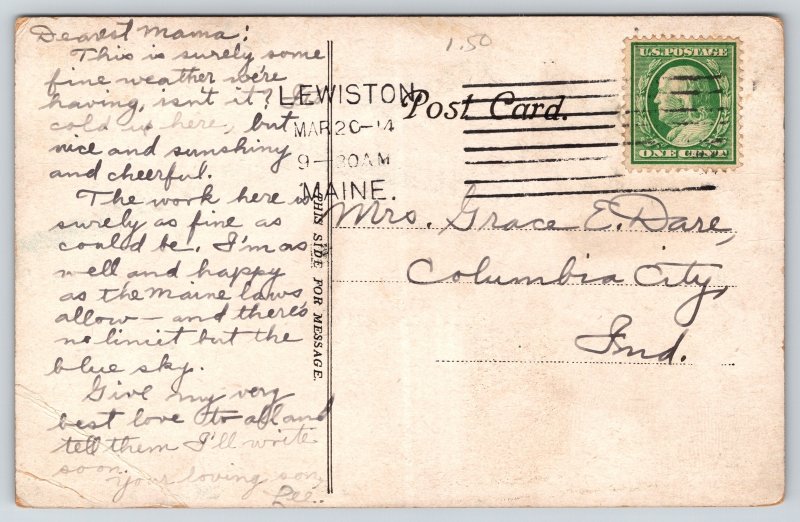 Dearest Mama:
This is surely some
fine weather we're
having, isn't it?
cold up here, but
nice and sunshiny
and cheerful.
The work here is
surely as fine as
could be. I'm as
well and happy
as the Maine laws
allow — and there's
no limiet but the
blue sky.
Give my very
best love to all and
tell them I'll write
soon.
Your loving son,
Lee.
THIS SIDE FOR MESSAGE.
1.50
LEWISTON,
MAR 20-14
9-30AM
MAINE.
Post Card.
U.S. POSTAGE
ONE CENT
Mrs. Grace E. Dare,
Columbia City,
Ind.